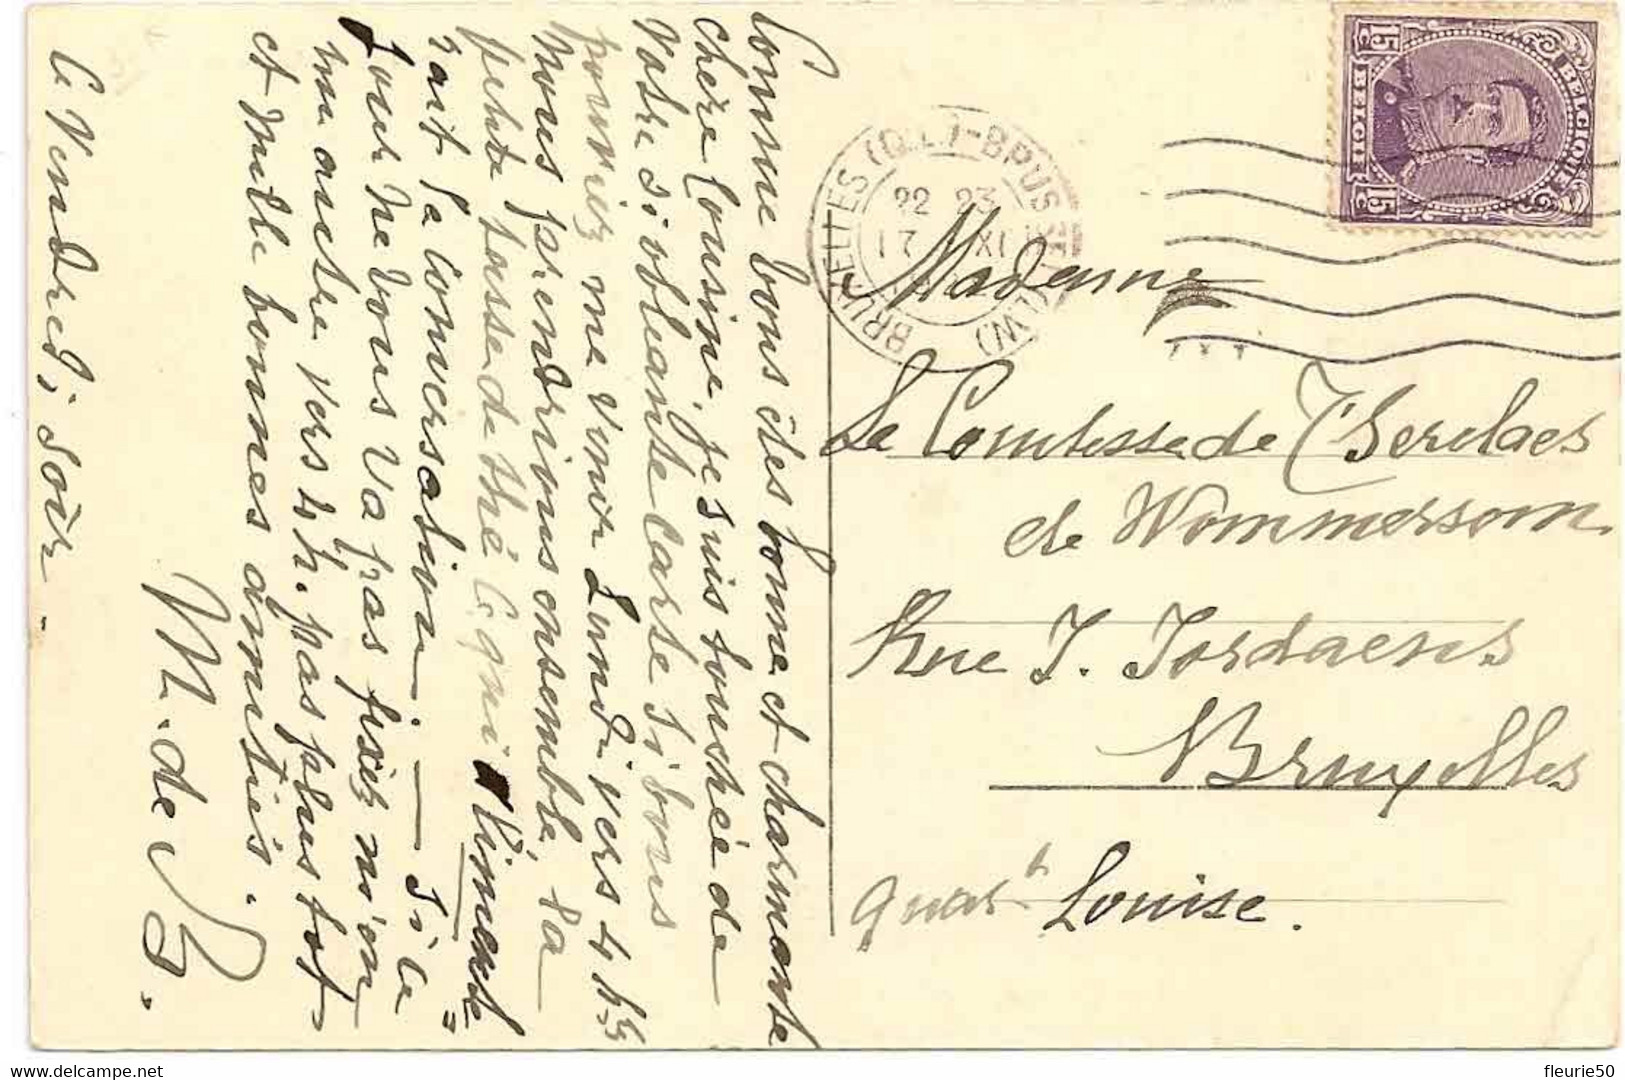 Comme vous êtes bonne et charmante
chère Cousine, je suis touchée de
votre si obligeante carte si vous
pourriez me venir Lundi vers 4 h½
nous prendrions ensemble, la
petite tasse de thé "qui alimente
rait la conversation" — Si le
jour ne vous va pas fixez m'en
un autre vers 4 h. pas plus tôt
et mille bonnes amitiés.
M. de B.
Ce Vendredi, soir.
BRUXELLES (Q.L.) - BRUSSEL (L.W.)
22 23
17 XI
BELGIQUE
BELGIË
15 C 15 C
Madame
La Comtesse de T'Serclaes
de Wommersom
Rue J. Jordaens
Bruxelles
Quart Louise.
delcampe.net
fleurie50